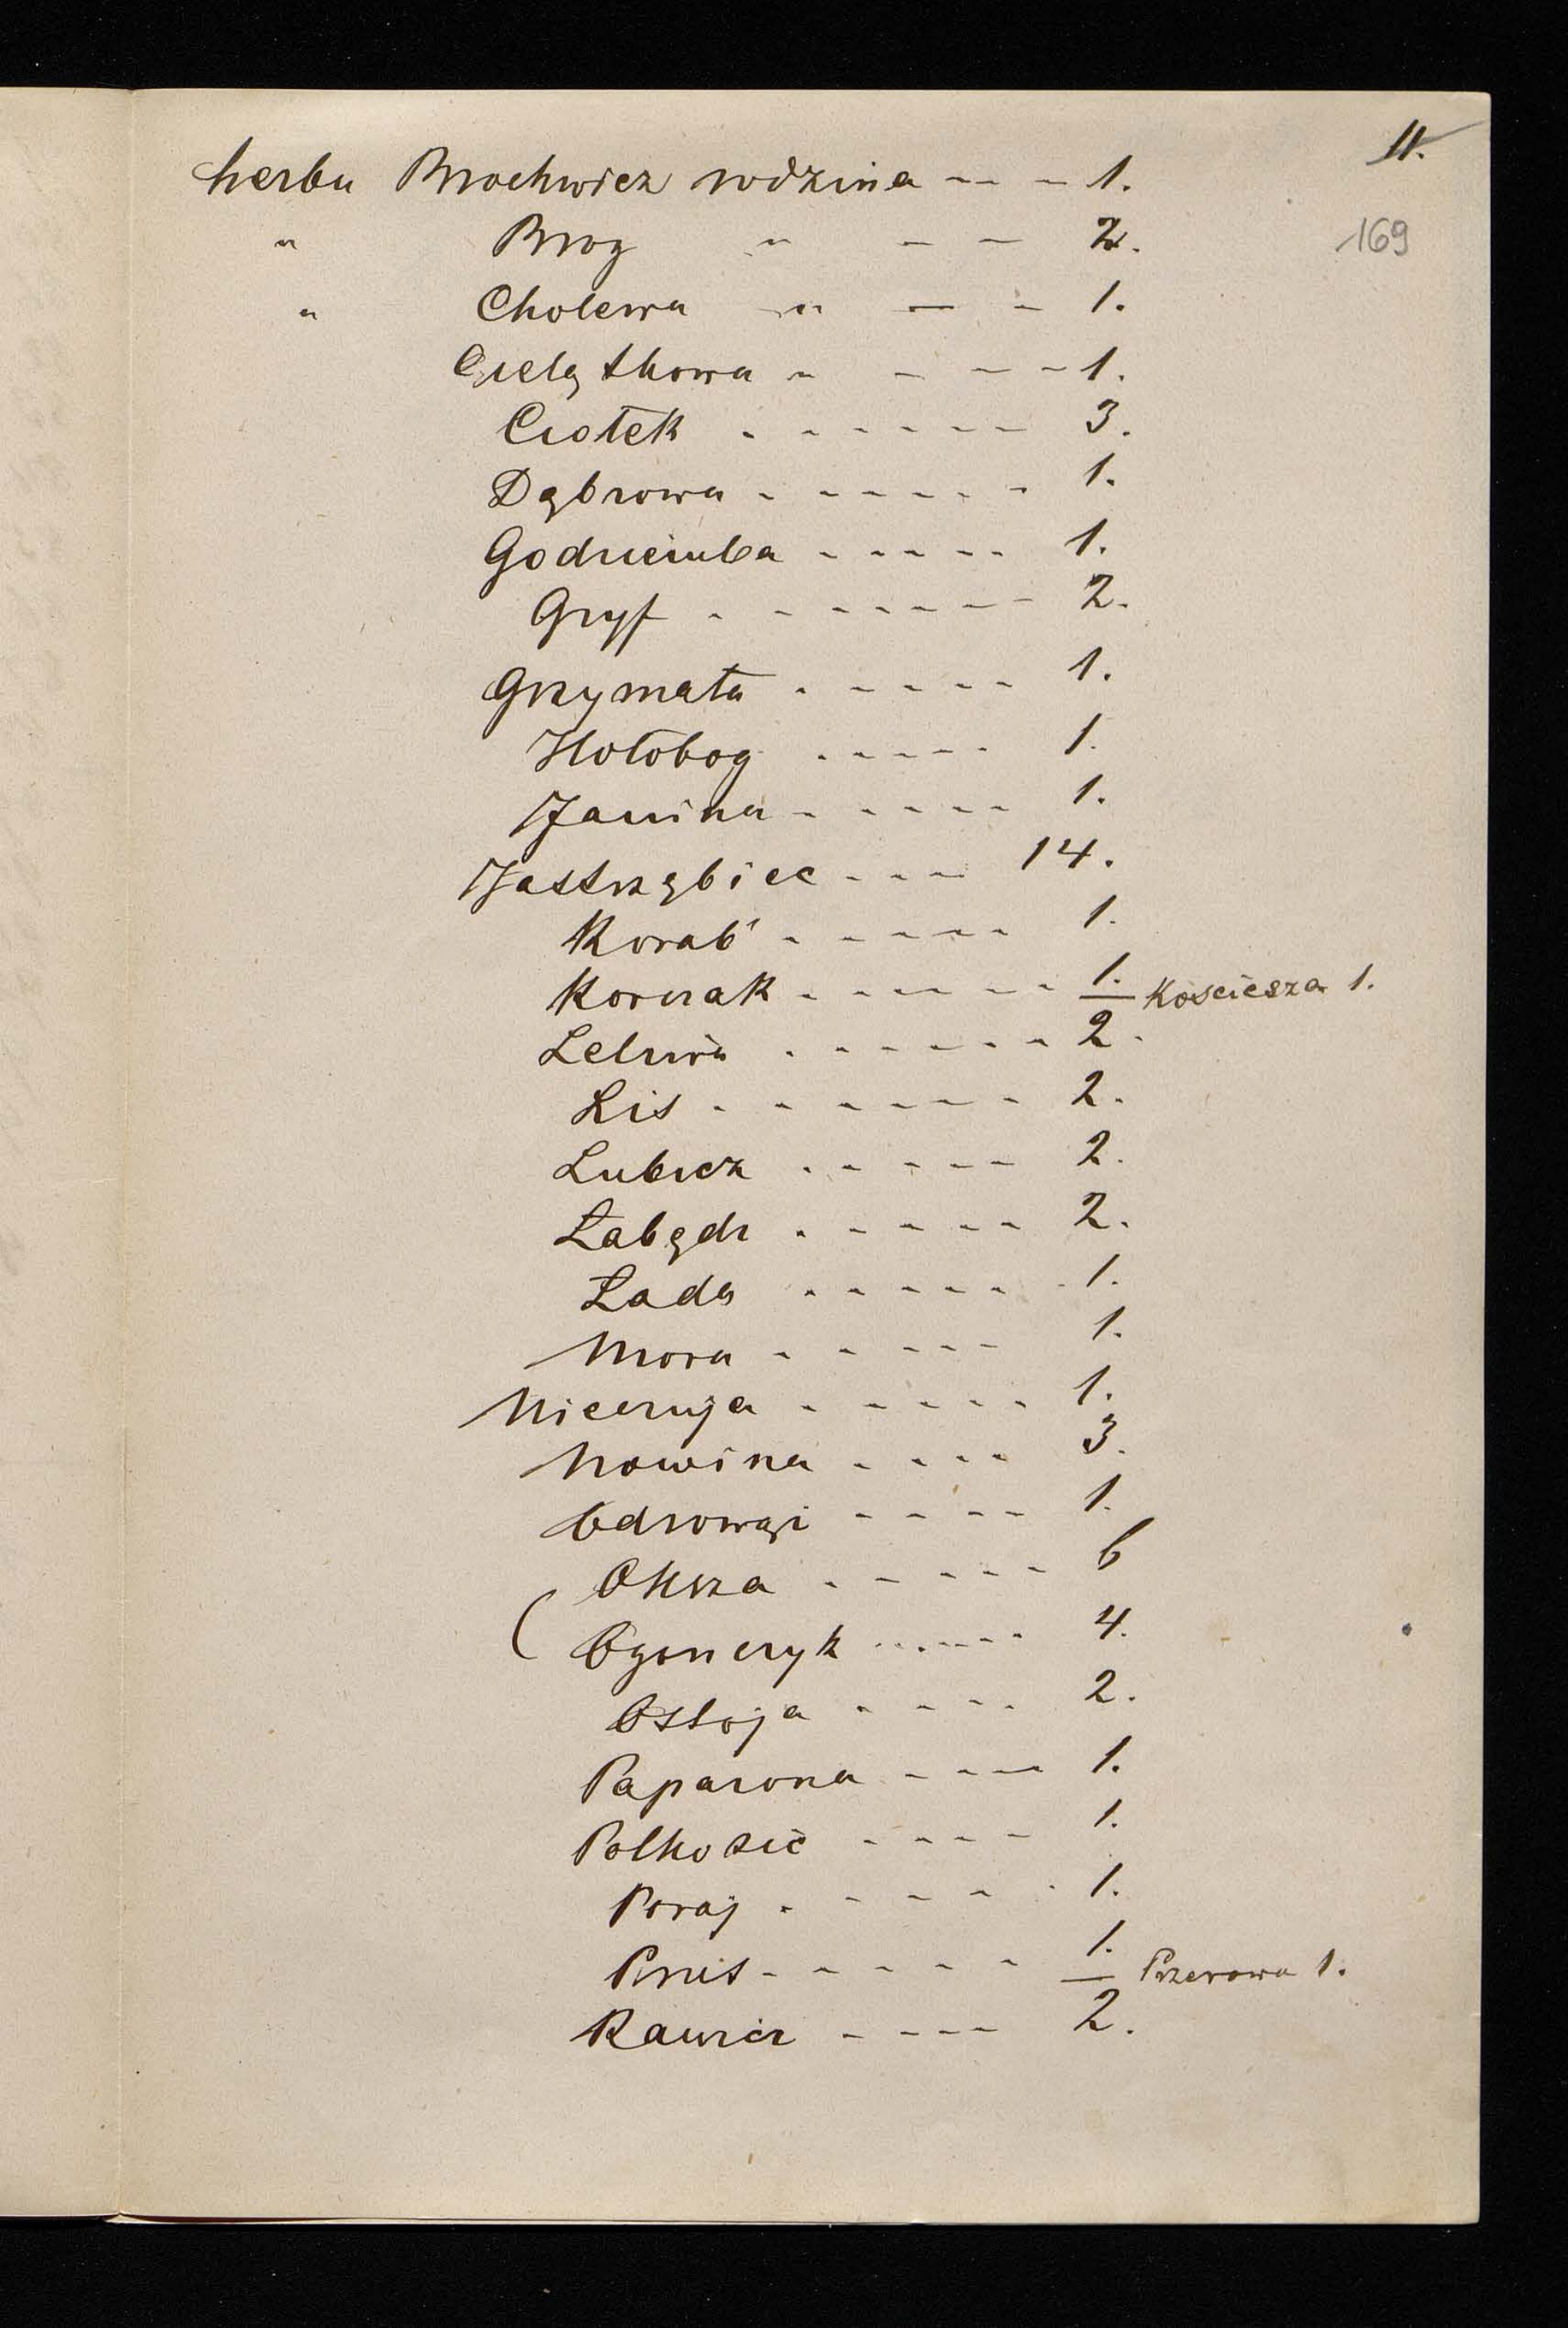 11.
169
herbu Brochwicz rodzina - - - 1.
" Brog " - - 2.
" Cholewa " - - 1.
Cielątkowa " - - - 1.
Ciołek - - - - - - 3.
Dąbrowa - - - - - 1.
Godziemba - - - - - 1.
Gryf - - - - - - 2.
Grzymała - - - - - 1.
Hołobog - - - - - 1.
Janina - - - - - 1.
Jastrzębiec - - - 14.
Korab' - - - - - 1.
Korczak - - - - - 1. Kościesza 1.
Leliwa - - - - - - 2.
Lis - - - - - - 2.
Lubicz - - - - - 2.
Łabędz - - - - - 2.
Łada - - - - - 1.
Mora - - - - - 1.
Nieczuja - - - - - 1.
Nowina - - - - 3.
Odrowąż - - - - 1.
Oksza - - - - - 6
( Ogończyk - - - - - 4.
Ostoja - - - - 2.
Paparona - - - - 1.
Półkozic - - - - 1.
Poraj - - - - - 1.
Prus - - - - - 1. Przerowa 1.
Rawicz - - - - 2.